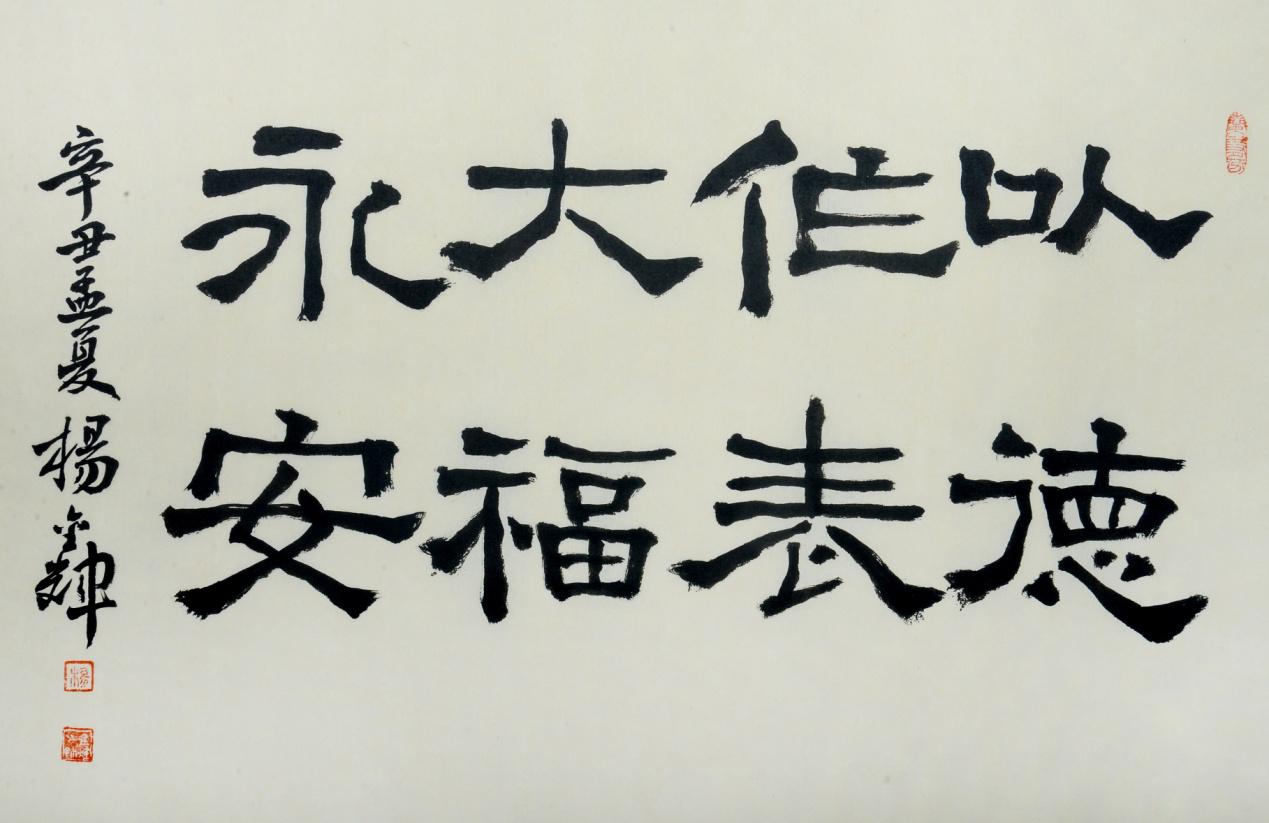 以德
作表
大福
永安
辛丑孟夏楊金輝